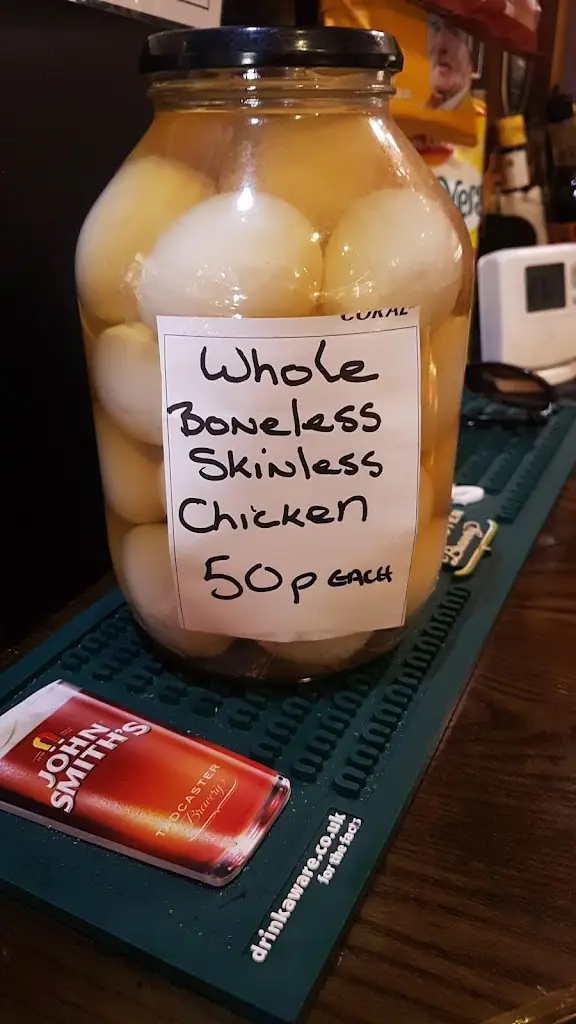 CORAL
Whole
Boneless
Skinless
Chicken
50p EACH
JOHN
SMITH'S
TADCASTER
Brewery
drinkaware.co.uk
for the facts